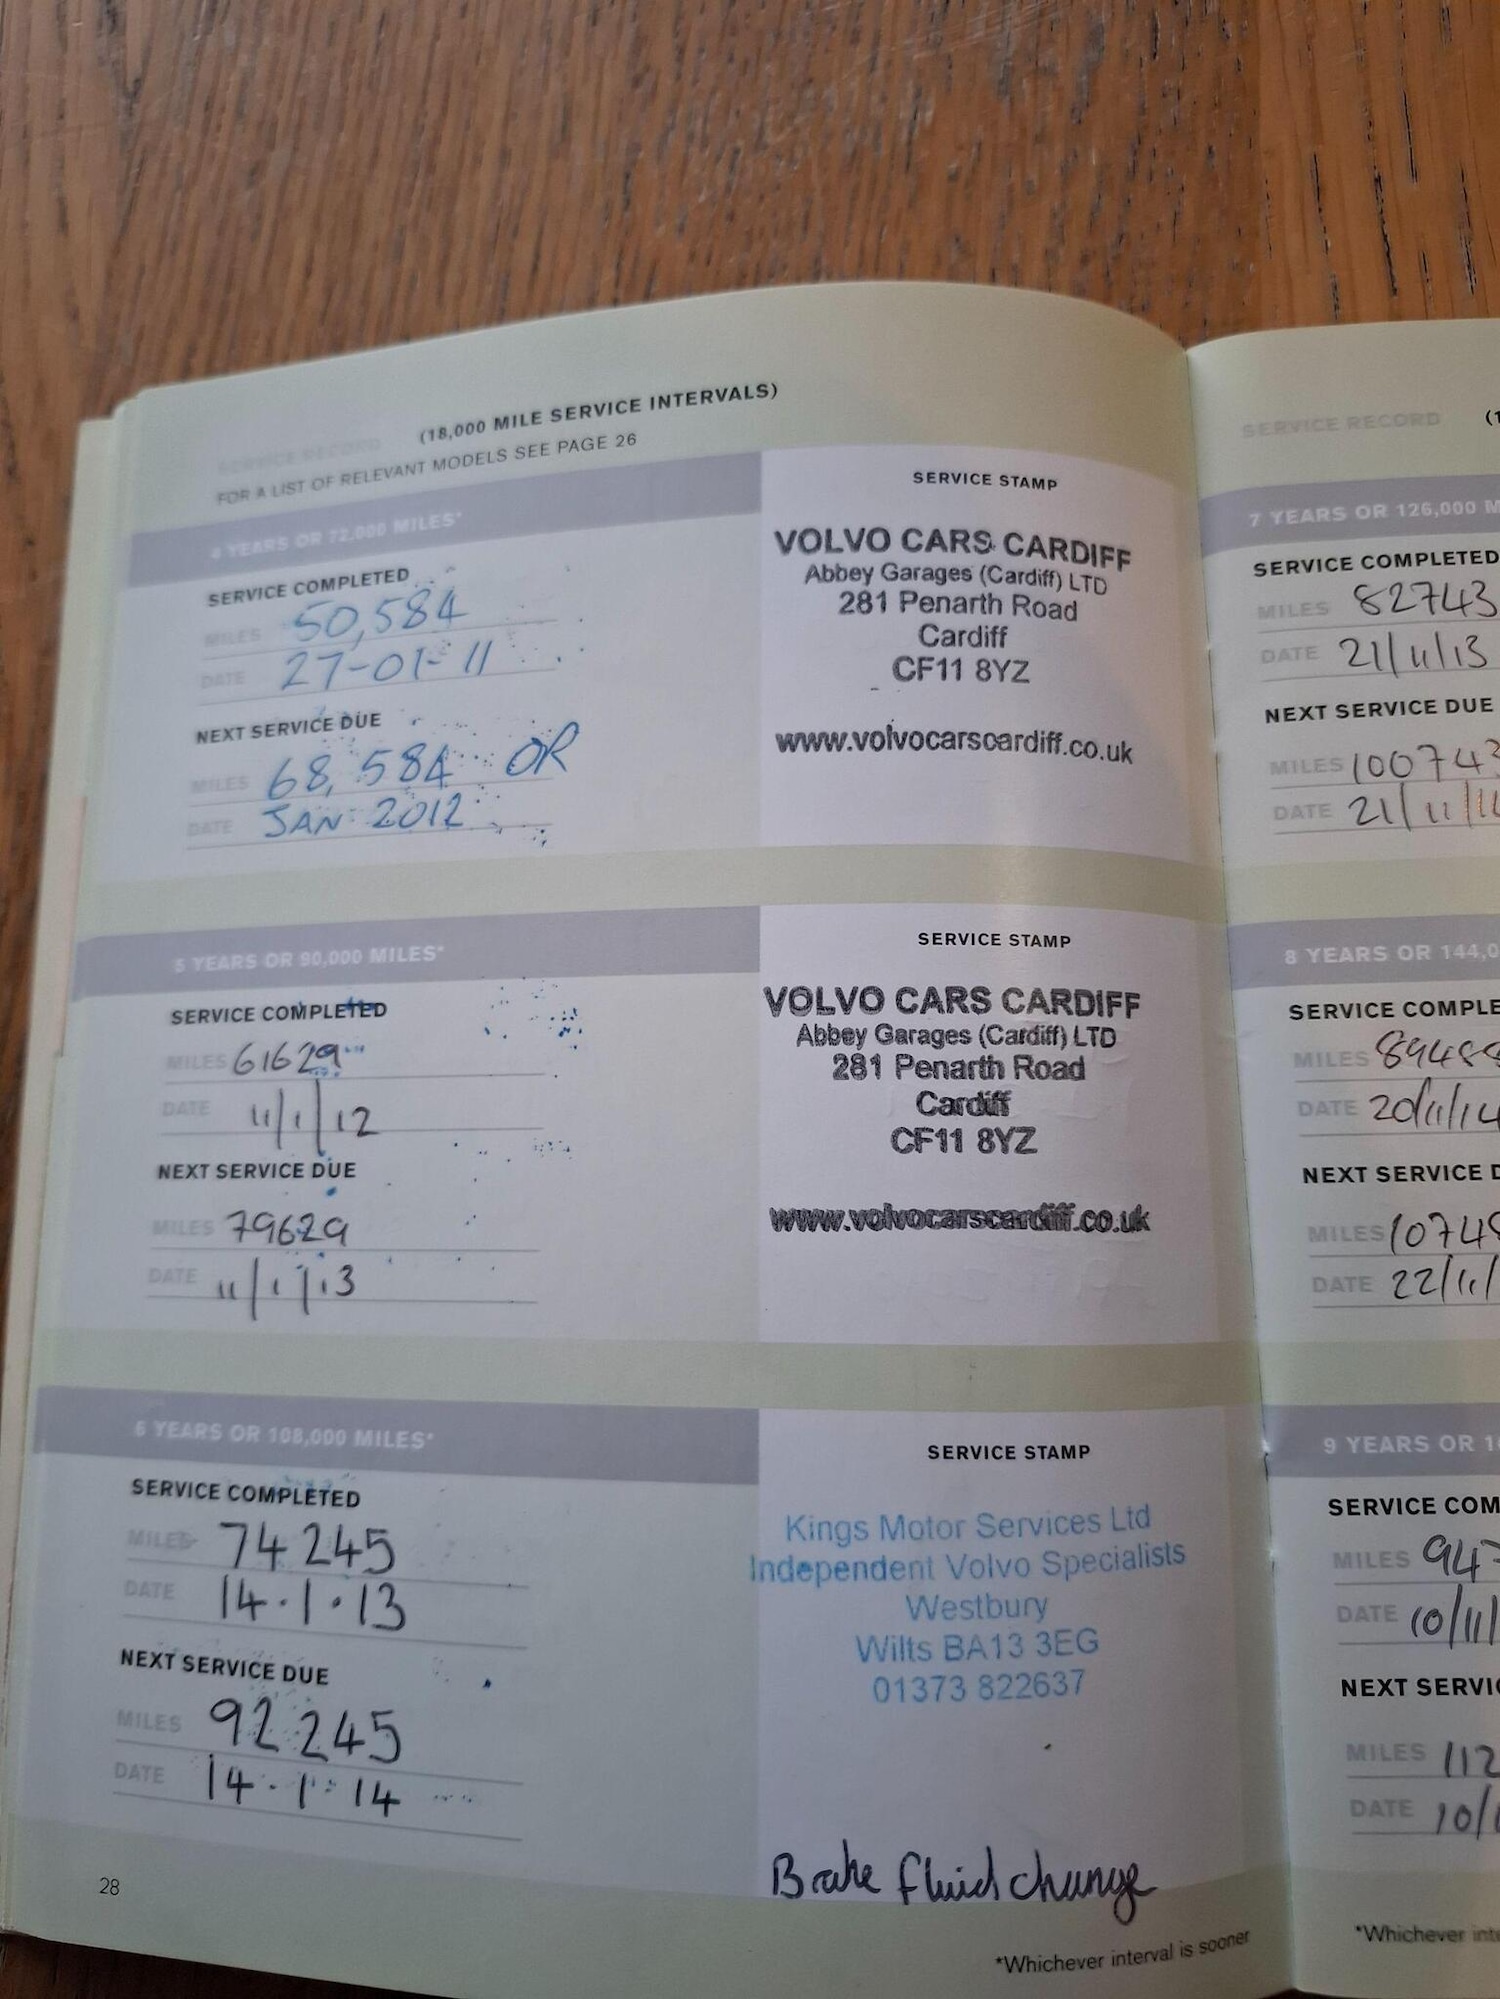 SERVICE RECORD (18,000 MILE SERVICE INTERVALS)
FOR A LIST OF RELEVANT MODELS SEE PAGE 26
4 YEARS OR 72,000 MILES*
SERVICE COMPLETED
MILES 50,584
DATE 27-01-11
NEXT SERVICE DUE
MILES 68,584 OR
DATE JAN 2012
SERVICE STAMP
VOLVO CARS CARDIFF
Abbey Garages (Cardiff) LTD
281 Penarth Road
Cardiff
CF11 8YZ
www.volvocarscardiff.co.uk
5 YEARS OR 90,000 MILES*
SERVICE COMPLETED
MILES 61629
DATE 11/1/12
NEXT SERVICE DUE
MILES 79629
DATE 11/1/13
SERVICE STAMP
VOLVO CARS CARDIFF
Abbey Garages (Cardiff) LTD
281 Penarth Road
Cardiff
CF11 8YZ
www.volvocarscardiff.co.uk
6 YEARS OR 108,000 MILES*
SERVICE COMPLETED
MILES 74245
DATE 14.1.13
NEXT SERVICE DUE
MILES 92245
DATE 14.1.14
SERVICE STAMP
Kings Motor Services Ltd
Independent Volvo Specialists
Westbury
Wilts BA13 3EG
01373 822637
Brake fluid change
28
*Whichever interval is sooner
SERVICE RECORD
7 YEARS OR 126,000
SERVICE COMPLETED
MILES 82743
DATE 21/11/13
NEXT SERVICE DUE
MILES 100743
DATE 21/11/
8 YEARS OR
SERVICE
MILES
DATE 20/11/14
NEXT SERVICE
MILES
DATE 22/11/
9 YEARS OR
SERVICE
MILES
DATE 10/11/
NEXT
MILES
DATE
*Whichever